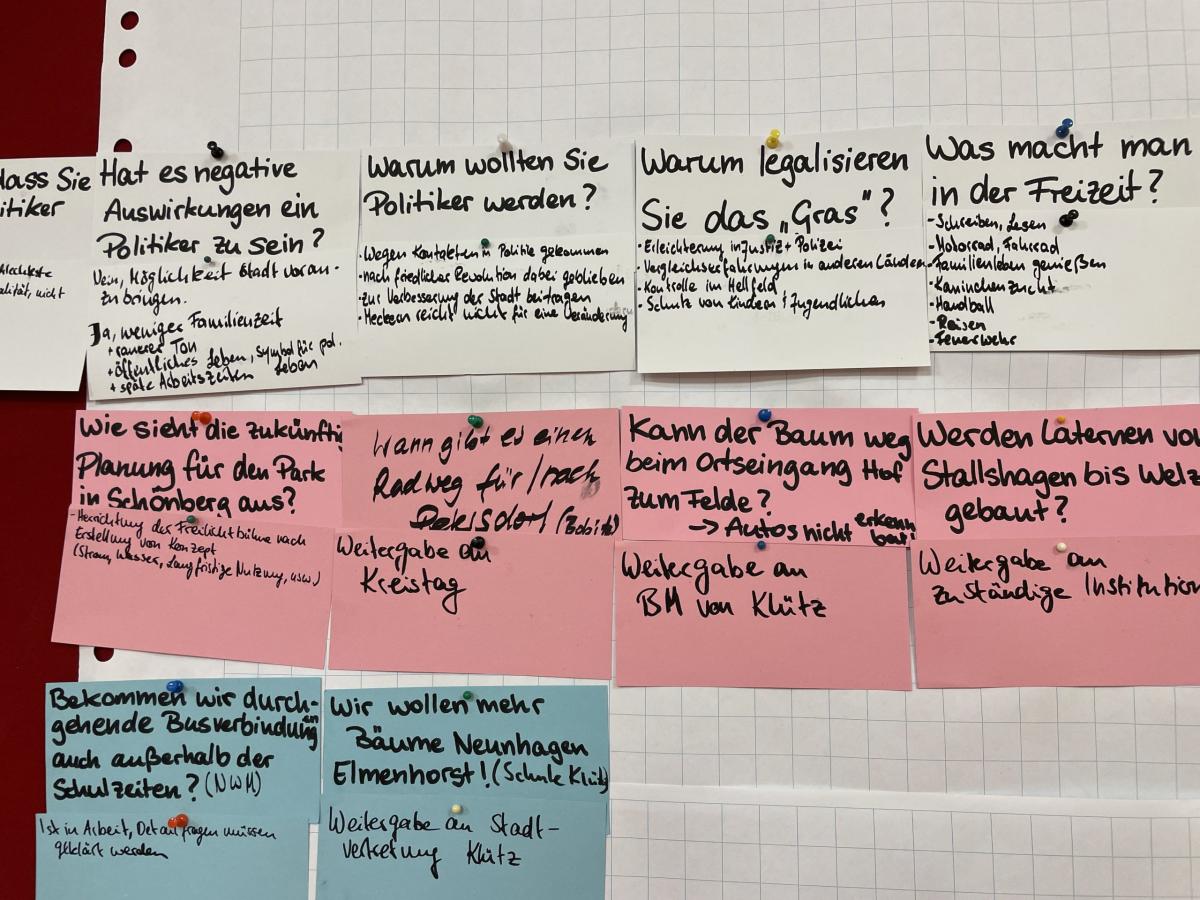 dass Sie
itiker
Hat es negative
Auswirkungen ein
Politiker zu sein?
Nein, Möglichkeit Stadt voran-
zubringen.
Ja, weniger Familienzeit
+ rauerer Ton
+ öffentliches Leben, Symbol für pol. Leben
+ späte Arbeitszeiten
Warum wollten Sie
Politiker werden?
- Wegen Kontakten in Politik gekommen
- nach friedlicher Revolution dabei geblieben
- zur Verbesserung der Stadt beitragen
- Meckern reicht nicht für eine Veränderung
Warum legalisieren
Sie das „Gras"?
- Erleichterung in Justiz + Polizei
- Vergleichserfahrungen in anderen Ländern
- Kontrolle im Hellfeld
- Schutz von Kindern + Jugendlichen
Was macht man
in der Freizeit?
- Schreiben, Lesen
- Motorrad, Fahrrad
- Familienleben genießen
- Kaninchenzucht
- Handball
- Reisen
- Feuerwehr
Wie sieht die zukünftig
Planung für den Park
in Schönberg aus?
- Herrichtung der Freilichtbühne nach
Erstellung von Konzept
(Strom, Wasser, langfristige Nutzung, usw.)
Wann gibt es einen
Radweg für/nach
Petersdorf
Weitergabe an
Kreistag
Kann der Baum weg
beim Ortseingang Hof
zum Felde?
→ Autos nicht erkennbar!
Weitergabe an
BM von Klütz
Werden Laternen vo
Stallshagen bis Welz
gebaut?
Weitergabe an
zuständige Institution
Bekommen wir durch-
gehende Busverbindung an
auch außerhalb der
Schulzeiten? (NWM)
Ist in Arbeit, Detailfragen müssen
geklärt werden
Wir wollen mehr
Bäume Neunhagen
Elmenhorst! (Schule Klütz)
Weitergabe an Stadt-
vertretung Klütz